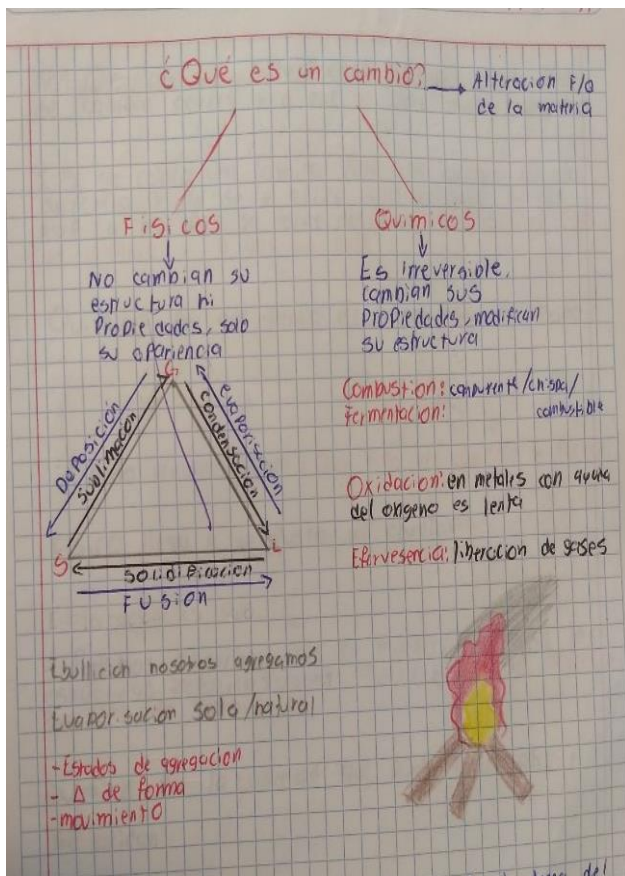 ¿Qué es un cambio?
Alteración F/Q
de la matria
Fisicos
No cambian su
estructura ni
Propiedades, solo
su apariencia
G
Deposición
Sublimación
evaporisación
condensación
S
L
solidificación
FUSION
Ebullicion nosotros agregamos
Evaporisacion sola/natural
-Estados de agregacion
- Δ de forma
-movimiento
Quimicos
Es irreversible,
cambian sus
Propiedades, modifican
su estructura
Combustion: /chispa/
combustible
fermentacion:
Oxidacion: en metales con ayuda
del oxigeno es lenta
Efervesencia: liberacion de gases
del